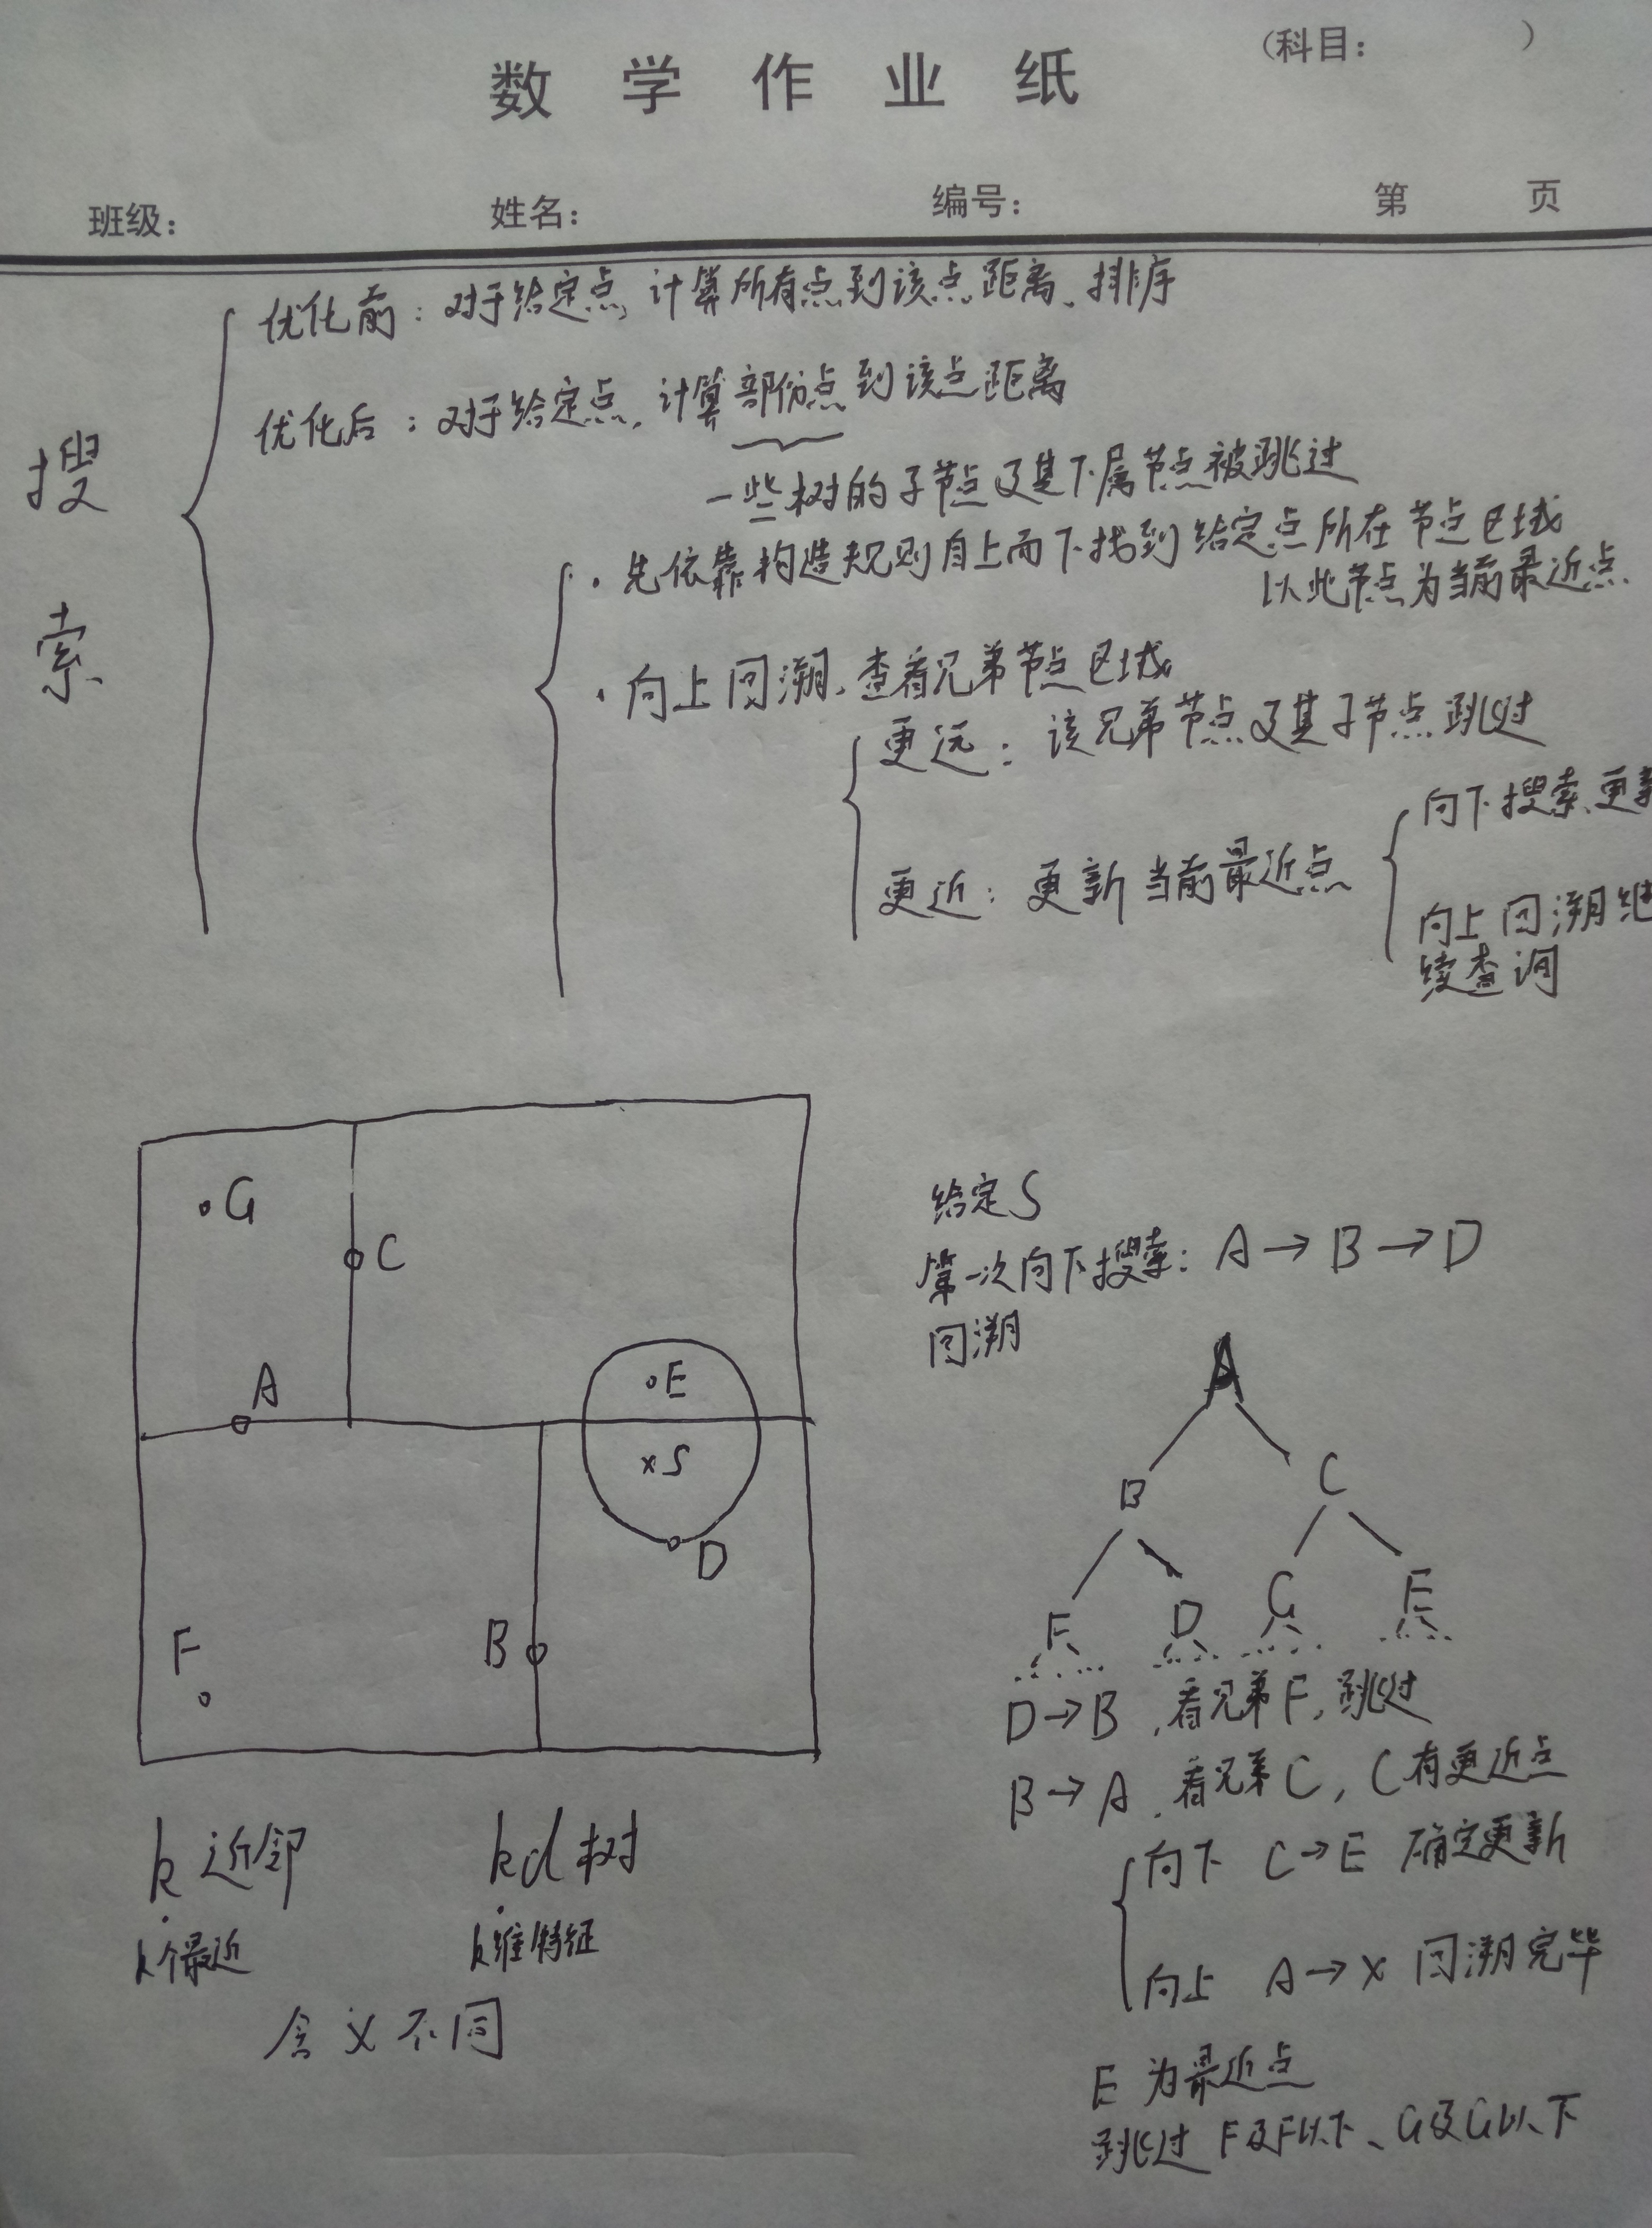 (科目: )
数学作业纸
班级: 姓名: 编号: 第 页
搜索
优化前：对于给定点，计算所有点到该点距离、排序
优化后：对于给定点，计算部份点到该点距离
一些树的子节点及其下属节点被跳过
·先依靠构造规则自上而下找到给定点所在节点区域
以此节点为当前最近点
·向上回溯，查看兄弟节点区域
更远：该兄弟节点及其子节点跳过
更近：更新当前最近点
向下搜索、更新
向上回溯继
续查询
G
C
A
E
S
D
F
B
给定S
第一次向下搜索：A→B→D
回溯
A
B C
F D G E
D→B，看兄弟F，跳过
B→A，看兄弟C，C有更近点
向下 C→E 确定更新
向上 A→x 回溯完毕
E为最近点
跳过F及F以下、G及G以下
k近邻 kd树
k个最近 k维特征
含义不同